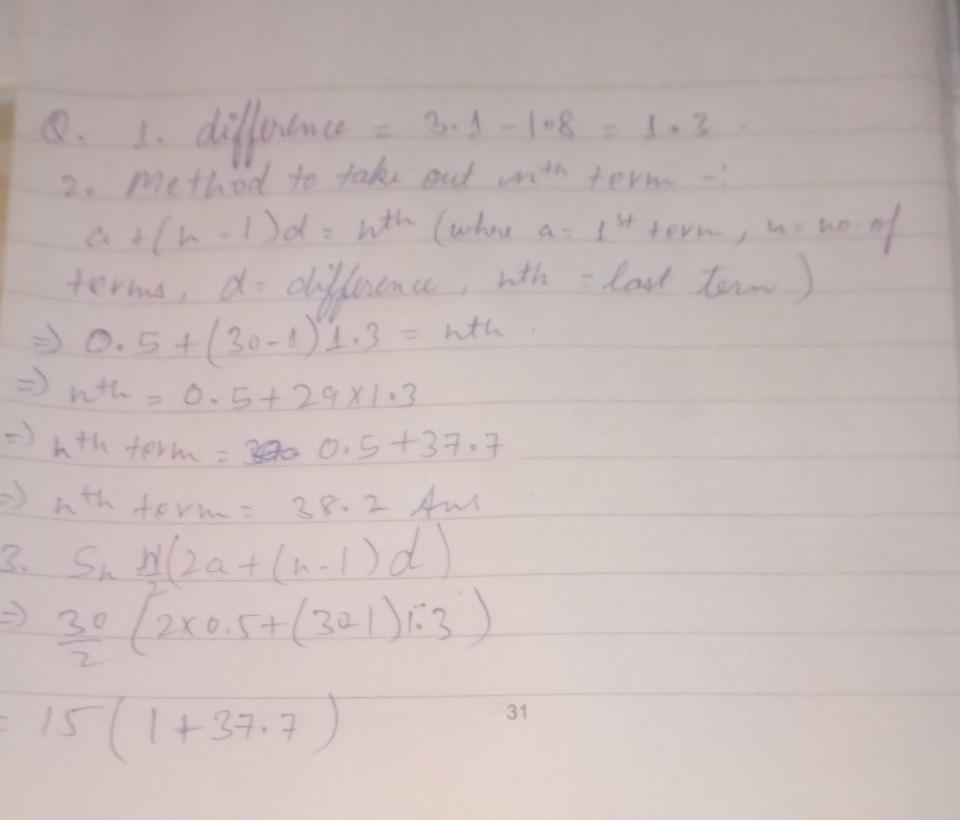 Q. 1. difference = 3.1 - 1.8 = 1.3
2. Method to take out nth term -:
a + (n - 1)d = nth (where a = 1st term, n = no. of
terms, d = difference, nth = last term)
⇒ 0.5 + (30-1) 1.3 = nth.
⇒ nth = 0.5 + 29 x 1.3
⇒ nth term = 0.5 + 37.7
⇒ nth term = 38.2 Ans
3. Sn n/2 (2a + (n-1) d)
⇒ 30/2 (2 x 0.5 + (30-1) 1.3)
= 15 (1 + 37.7)
31